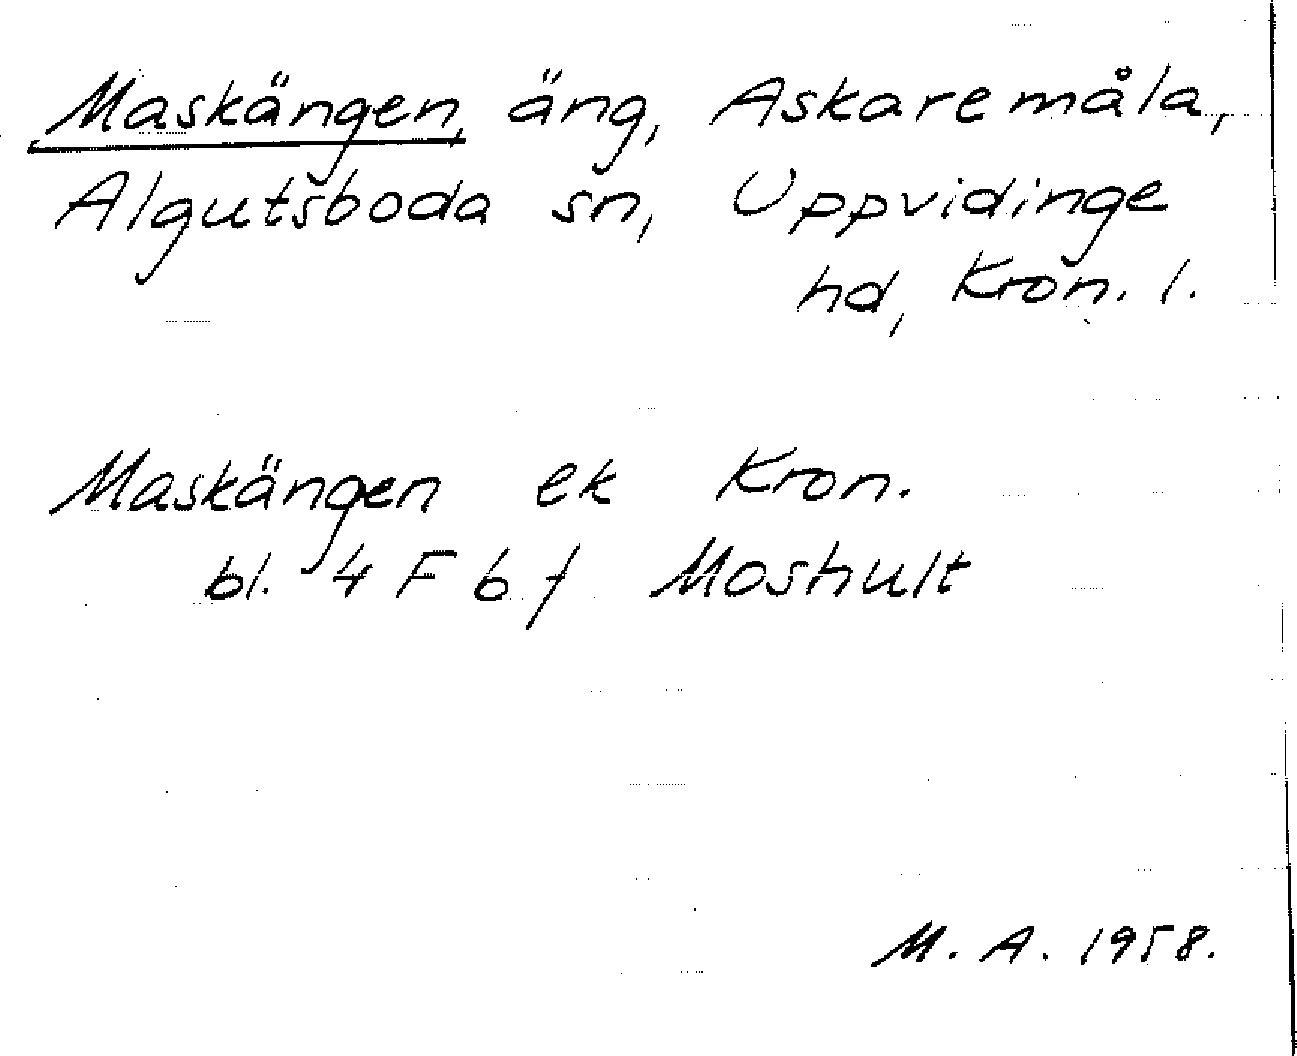 Maskängen, äng, Askaremåla,
Algutsboda sn, Uppvidinge
hd, Kron. l.
Maskängen ek Kron.
bl. 4 F b f Moshult
M. A. 1958.